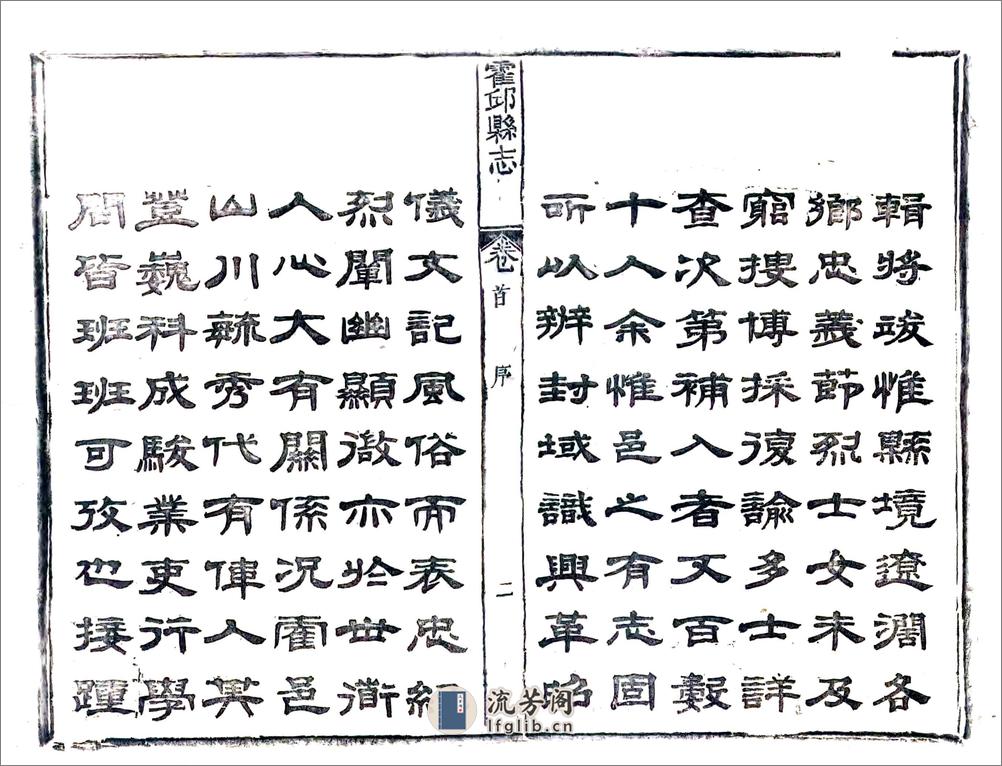 輯將竣惟縣境遼濶各
鄉忠義節烈士女未及
窮搜博採復諭多士詳
查次第補入者又百數
十人余惟邑之有志固
所以辨封域識興革昭
霍邱縣志
卷首
序
二
儀文記風俗而表忠紀
烈闡幽顯微亦於世衜
人心大有關係況霍邑
山川毓秀代有偉人其
登巍科成駿業吏行學
問皆班班可攷也接踵
流芳阁
lfglib.cn